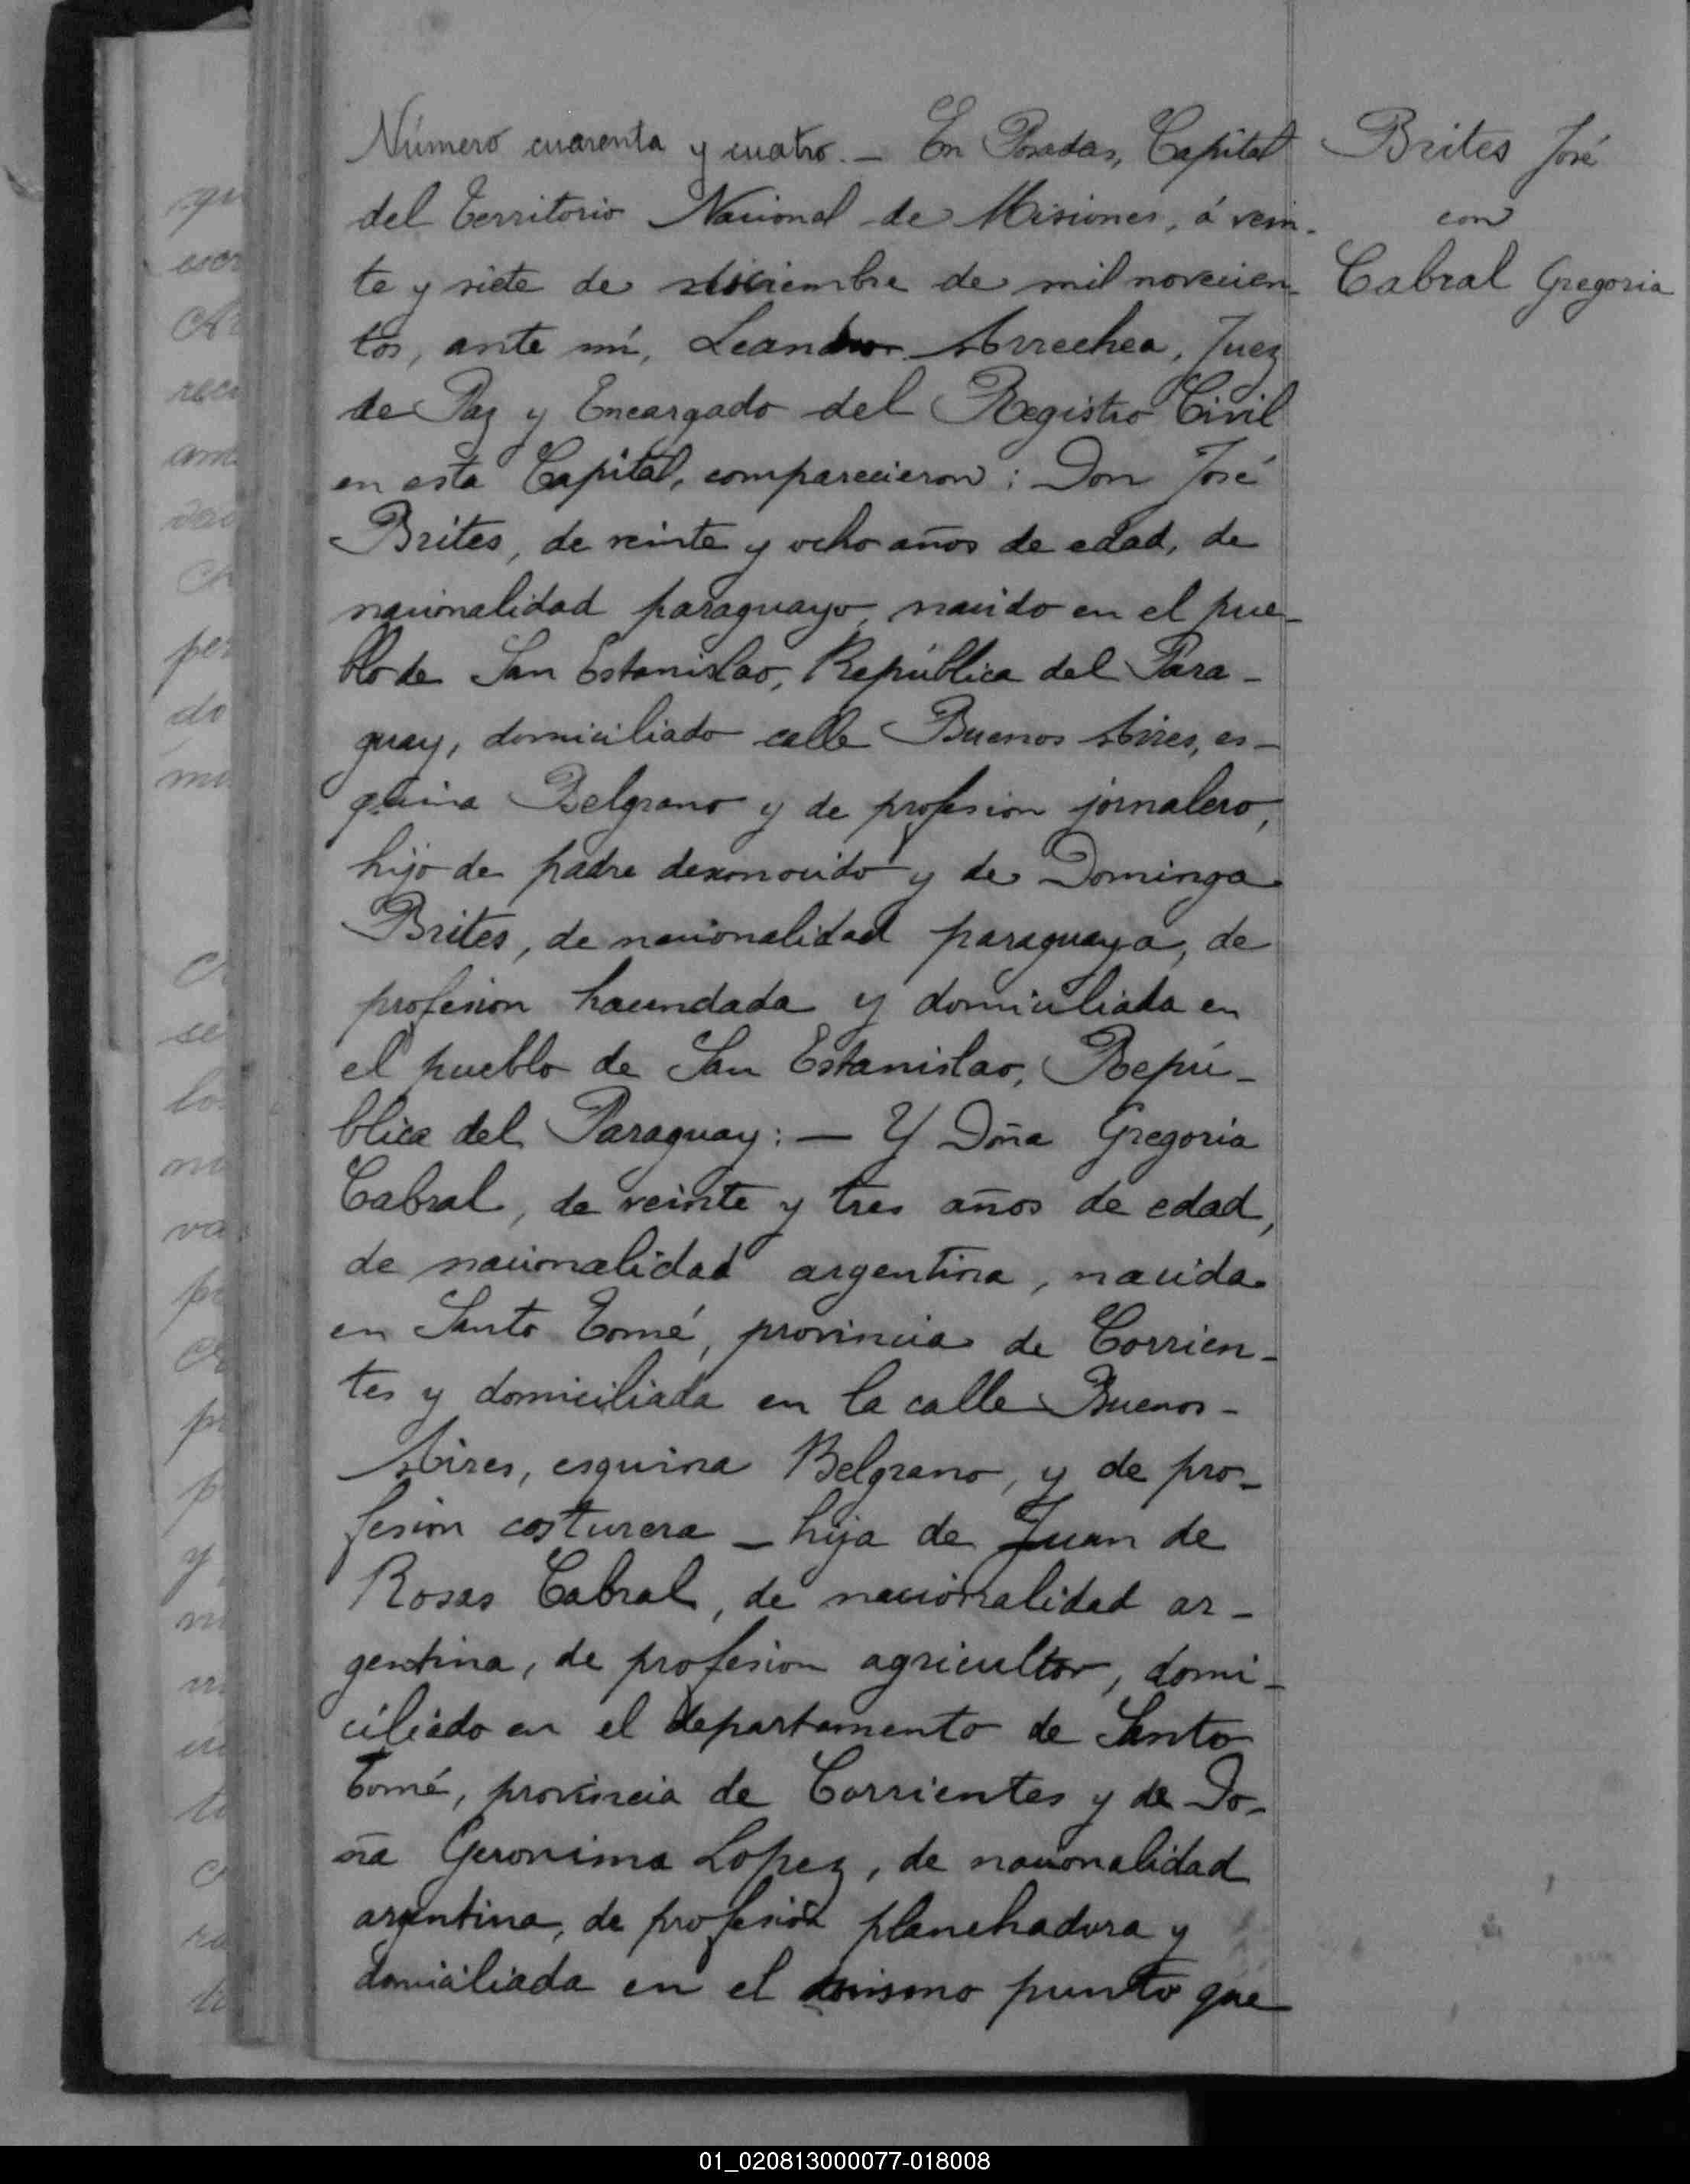 Número cuarenta y cuatro.— En Posadas, Capital
del Territorio Nacional de Misiones, á vein-
te y siete de diciembre de mil novecien-
tos, ante mí, Leandro Arrechea, Juez
de Paz y Encargado del Registro Civil
en esta Capital, comparecieron: Don José
Brites, de veinte y ocho años de edad, de
nacionalidad paraguayo, nacido en el pue-
blo de San Estanislao, República del Para-
guay, domiciliado calle Buenos Aires, es-
quina Belgrano y de profesion jornalero,
hijo de padre desconocido y de Dominga
Brites, de nacionalidad paraguaya, de
profesion hacendada y domiciliada en
el pueblo de San Estanislao, Repú-
blica del Paraguay:— Y Doña Gregoria
Cabral, de veinte y tres años de edad,
de nacionalidad argentina, nacida
en Santo Tomé, provincia de Corrien-
tes y domiciliada en la calle Buenos-
Aires, esquina Belgrano, y de pro-
fesion costurera — hija de Juan de
Rosas Cabral, de nacionalidad ar-
gentina, de profesion agricultor, domi-
ciliado en el departamento de Santo
Tomé, provincia de Corrientes y de Do-
ña Geronima Lopez, de nacionalidad
argentina, de profesión planchadora y
domiciliada en el mismo punto que
Brites José
con
Cabral Gregoria
01_020813000077-018008